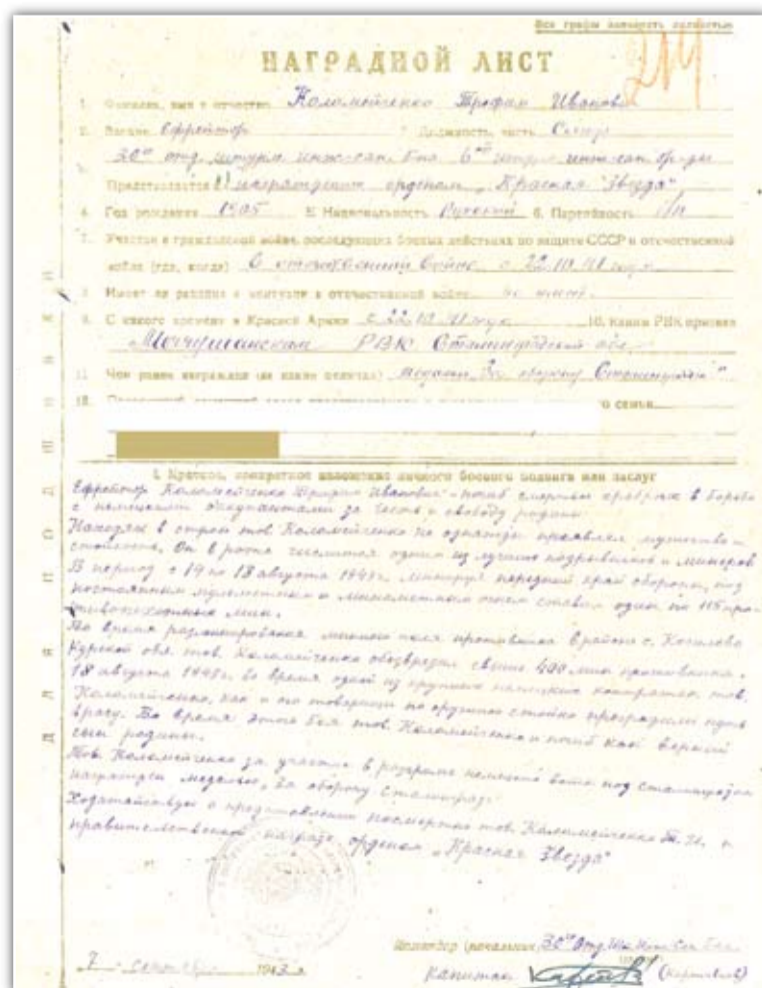 Все графы заполнять полностью
НАГРАДНОЙ ЛИСТ
214
1. Фамилия, имя и отчество Коломейченко Трофим Иванович
2. Звание Ефрейтор Должность, часть Сапер
30го отд. штурм. инж-сап. б-на 6ой штурм. инж-сап. бр-ды
Представляется к награждению орденом „Красная Звезда“
4. Год рождения 1905 5. Национальность Русский 6. Партийность б/п
7. Участие в гражданской войне, последующих боевых действиях по защите СССР и отечественной
войне (где, когда) В отечественной войне с 22.10.41 года
8. Имеет ли ранения и контузии в отечественной войне не имеет.
9. С какого времени в Красной Армии с 22.10.41 года 10. Каким РВК призван
РВК Сталинградской обл.
11. Чем ранее награжден (за какие отличия) медаль „За оборону Сталинграда“
12. семьи
ДЛЯ ПОДШИВКИ
I. Краткое, конкретное изложение личного боевого подвига или заслуг
Ефрейтор Коломейченко Трофим Иванович - погиб смертью храбрых в борьбе
с немецкими оккупантами за честь и свободу родины.
Находясь в строю тов. Коломейченко не однажды проявлял мужество и
стойкость. Он в роте считался одним из лучших подрывников и минеров
В период с 14 по 18 августа 1943г. минируя передний край обороны, под
постоянным пулеметным и минометным огнем ставил один по 115 про-
тивопехотных мин.
Во время разминирования минного поля противника в районе с.
Курской обл. тов. Коломейченко обезвредил свыше 400 мин противника.
18 августа 1943г. во время одной из крупных немецких контратак тов.
Коломейченко, как и его товарищи по оружию стойко преградили путь
врагу. Во время этого боя тов. Коломейченко и погиб как верный
сын родины.
Тов. Коломейченко за участие в разгроме немецких войск под Сталинградом
награжден медалью „За оборону Сталинграда“
Ходатайствую о представлении посмертно тов. Коломейченко Т. И. к
правительственной награде орденом „Красная Звезда“
Командир (начальник) 30го Отд. Шт. Инж. Сап. Б-на
7 сентября 1943 г.
Капитан